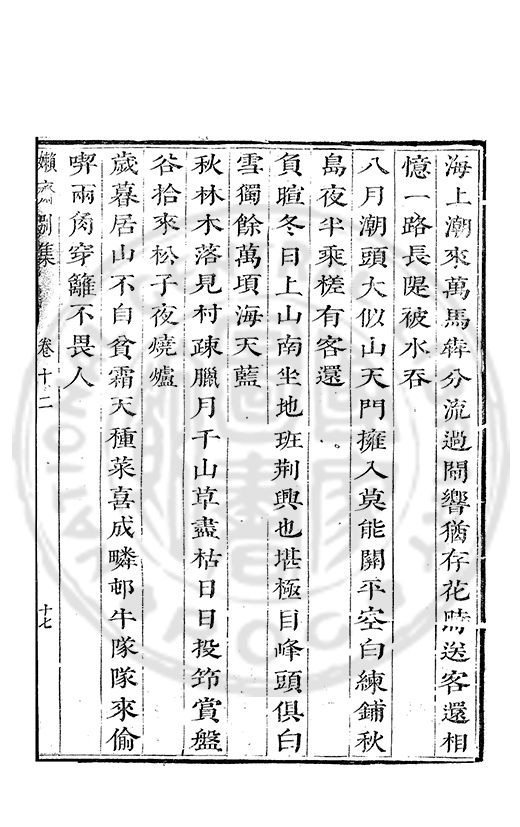 海上潮來萬馬犇分流過閘響猶存花時送客還相
憶一路長隄被水吞
八月潮頭大似山天門擁入莫能關平空白練鋪秋
島夜半乘槎有客還
負暄冬日上山南坐地班荆興也堪極目峰頭俱白
雪獨餘萬頃海天藍
秋林木落見村疎臘月千山草盡枯日日投笻賞盤
谷拾來松子夜燒爐
歲暮居山不自貧霜天種菜喜成疄邨牛隊隊來偷
喫兩角穿籬不畏人
嬾齋別集
卷十二
十七